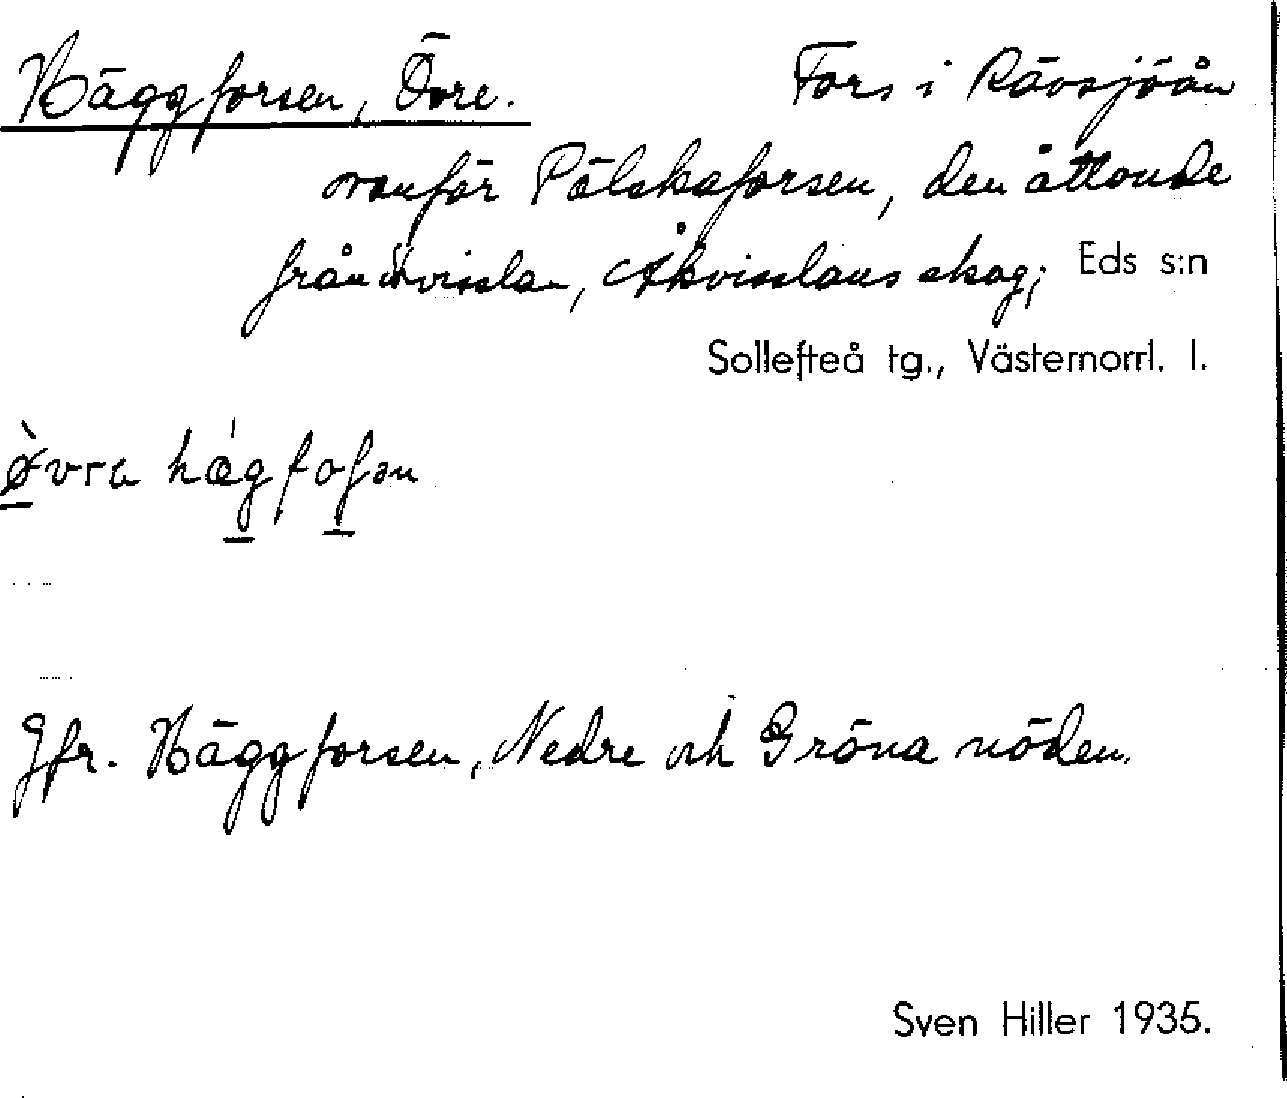 Häggforsen, Övre. Fors i Rävsjöån
ovanför Pålskaforsen, den åttonde
från Åkvisslan, Åkvisslans skog; Eds s:n
Sollefteå tg., Västernorrl. l.
Jfr. Häggforsen, Nedre och Gröna nöden.
Sven Hiller 1935.